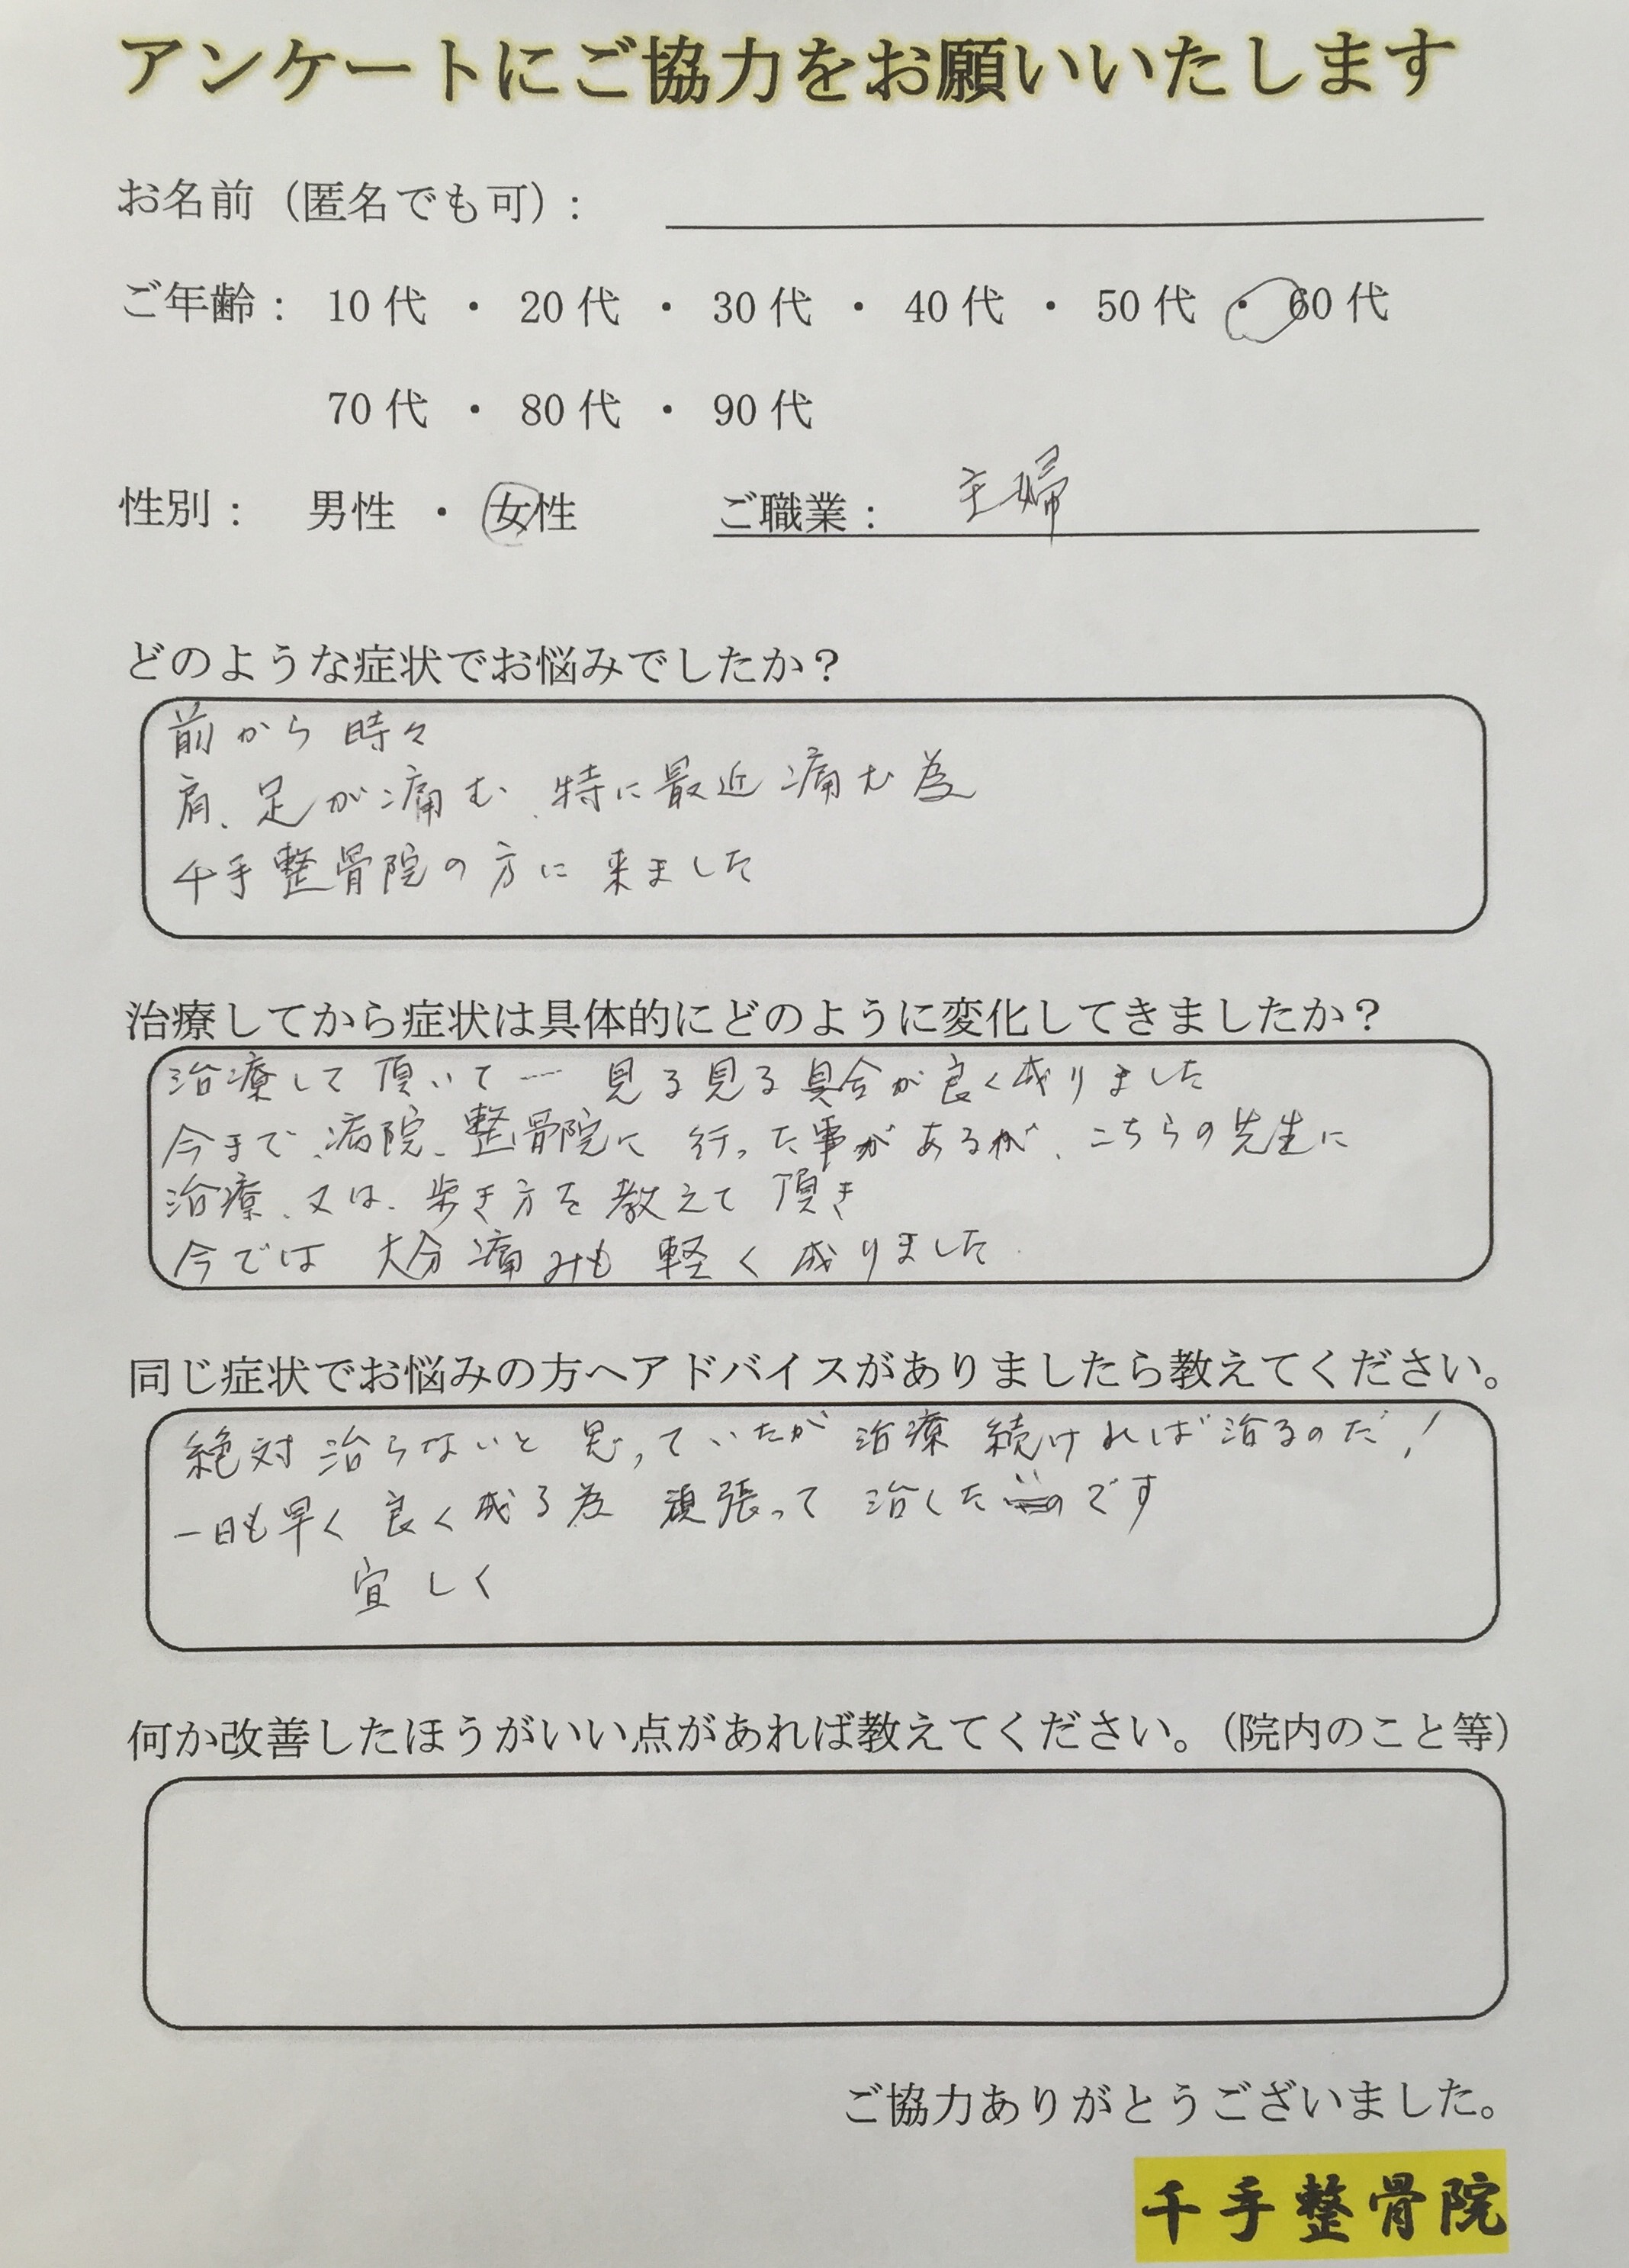 アンケートにご協力をお願いいたします
お名前（匿名でも可）：
ご年齢： 10代 ・ 20代 ・ 30代 ・ 40代 ・ 50代 ・ 60代
70代 ・ 80代 ・ 90代
性別： 男性 ・ 女性 ご職業： 主婦
どのような症状でお悩みでしたか？
前から時々
肩、足が痛む、特に最近痛む為
千手整骨院の方に来ました
治療してから症状は具体的にどのように変化してきましたか？
治療して頂いて… 見る見る具合が良く成りました
今まで、病院、整骨院に行った事があるが、こちらの先生に
治療、又は、歩き方を教えて頂き
今では大分痛みも軽く成りました
同じ症状でお悩みの方へアドバイスがありましたら教えてください。
絶対治らないと思っていたが治療続ければ治るのだ！
一日も早く良く成る為頑張って治したのです
宜しく
何か改善したほうがいい点があれば教えてください。（院内のこと等）
ご協力ありがとうございました。
千手整骨院